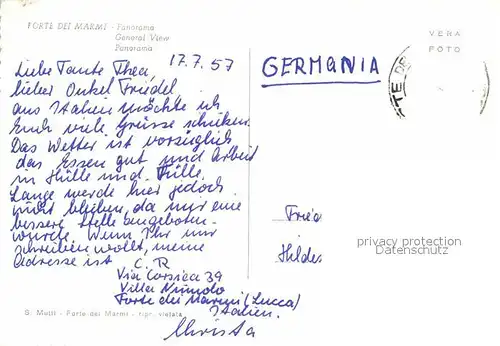 FORTE DEI MARMI - Panorama
General View
Panorama
VERA
FOTO
17.7.57
Liebe Tante Thea,
lieber Onkel Friedel
aus Italien möchte ich
Euch viele Grüsse schicken.
Das Wetter ist vorzüglich
das Essen gut und Arbeit
in Hülle und Fülle.
Lange werde hier jedoch
nicht bleiben, da mir eine
bessere Stelle angeboten
wurde. Wenn Ihr mir
schreiben wollt, meine
Adresse ist C R
Via Corsica 39
Villa
Forte dei Marmi (Lucca)
Italien.
Christa
GERMANIA
Frie
Hildes
privacy protection
Datenschutz
S. Mutti - Forte dei Marmi - ripr. vietata